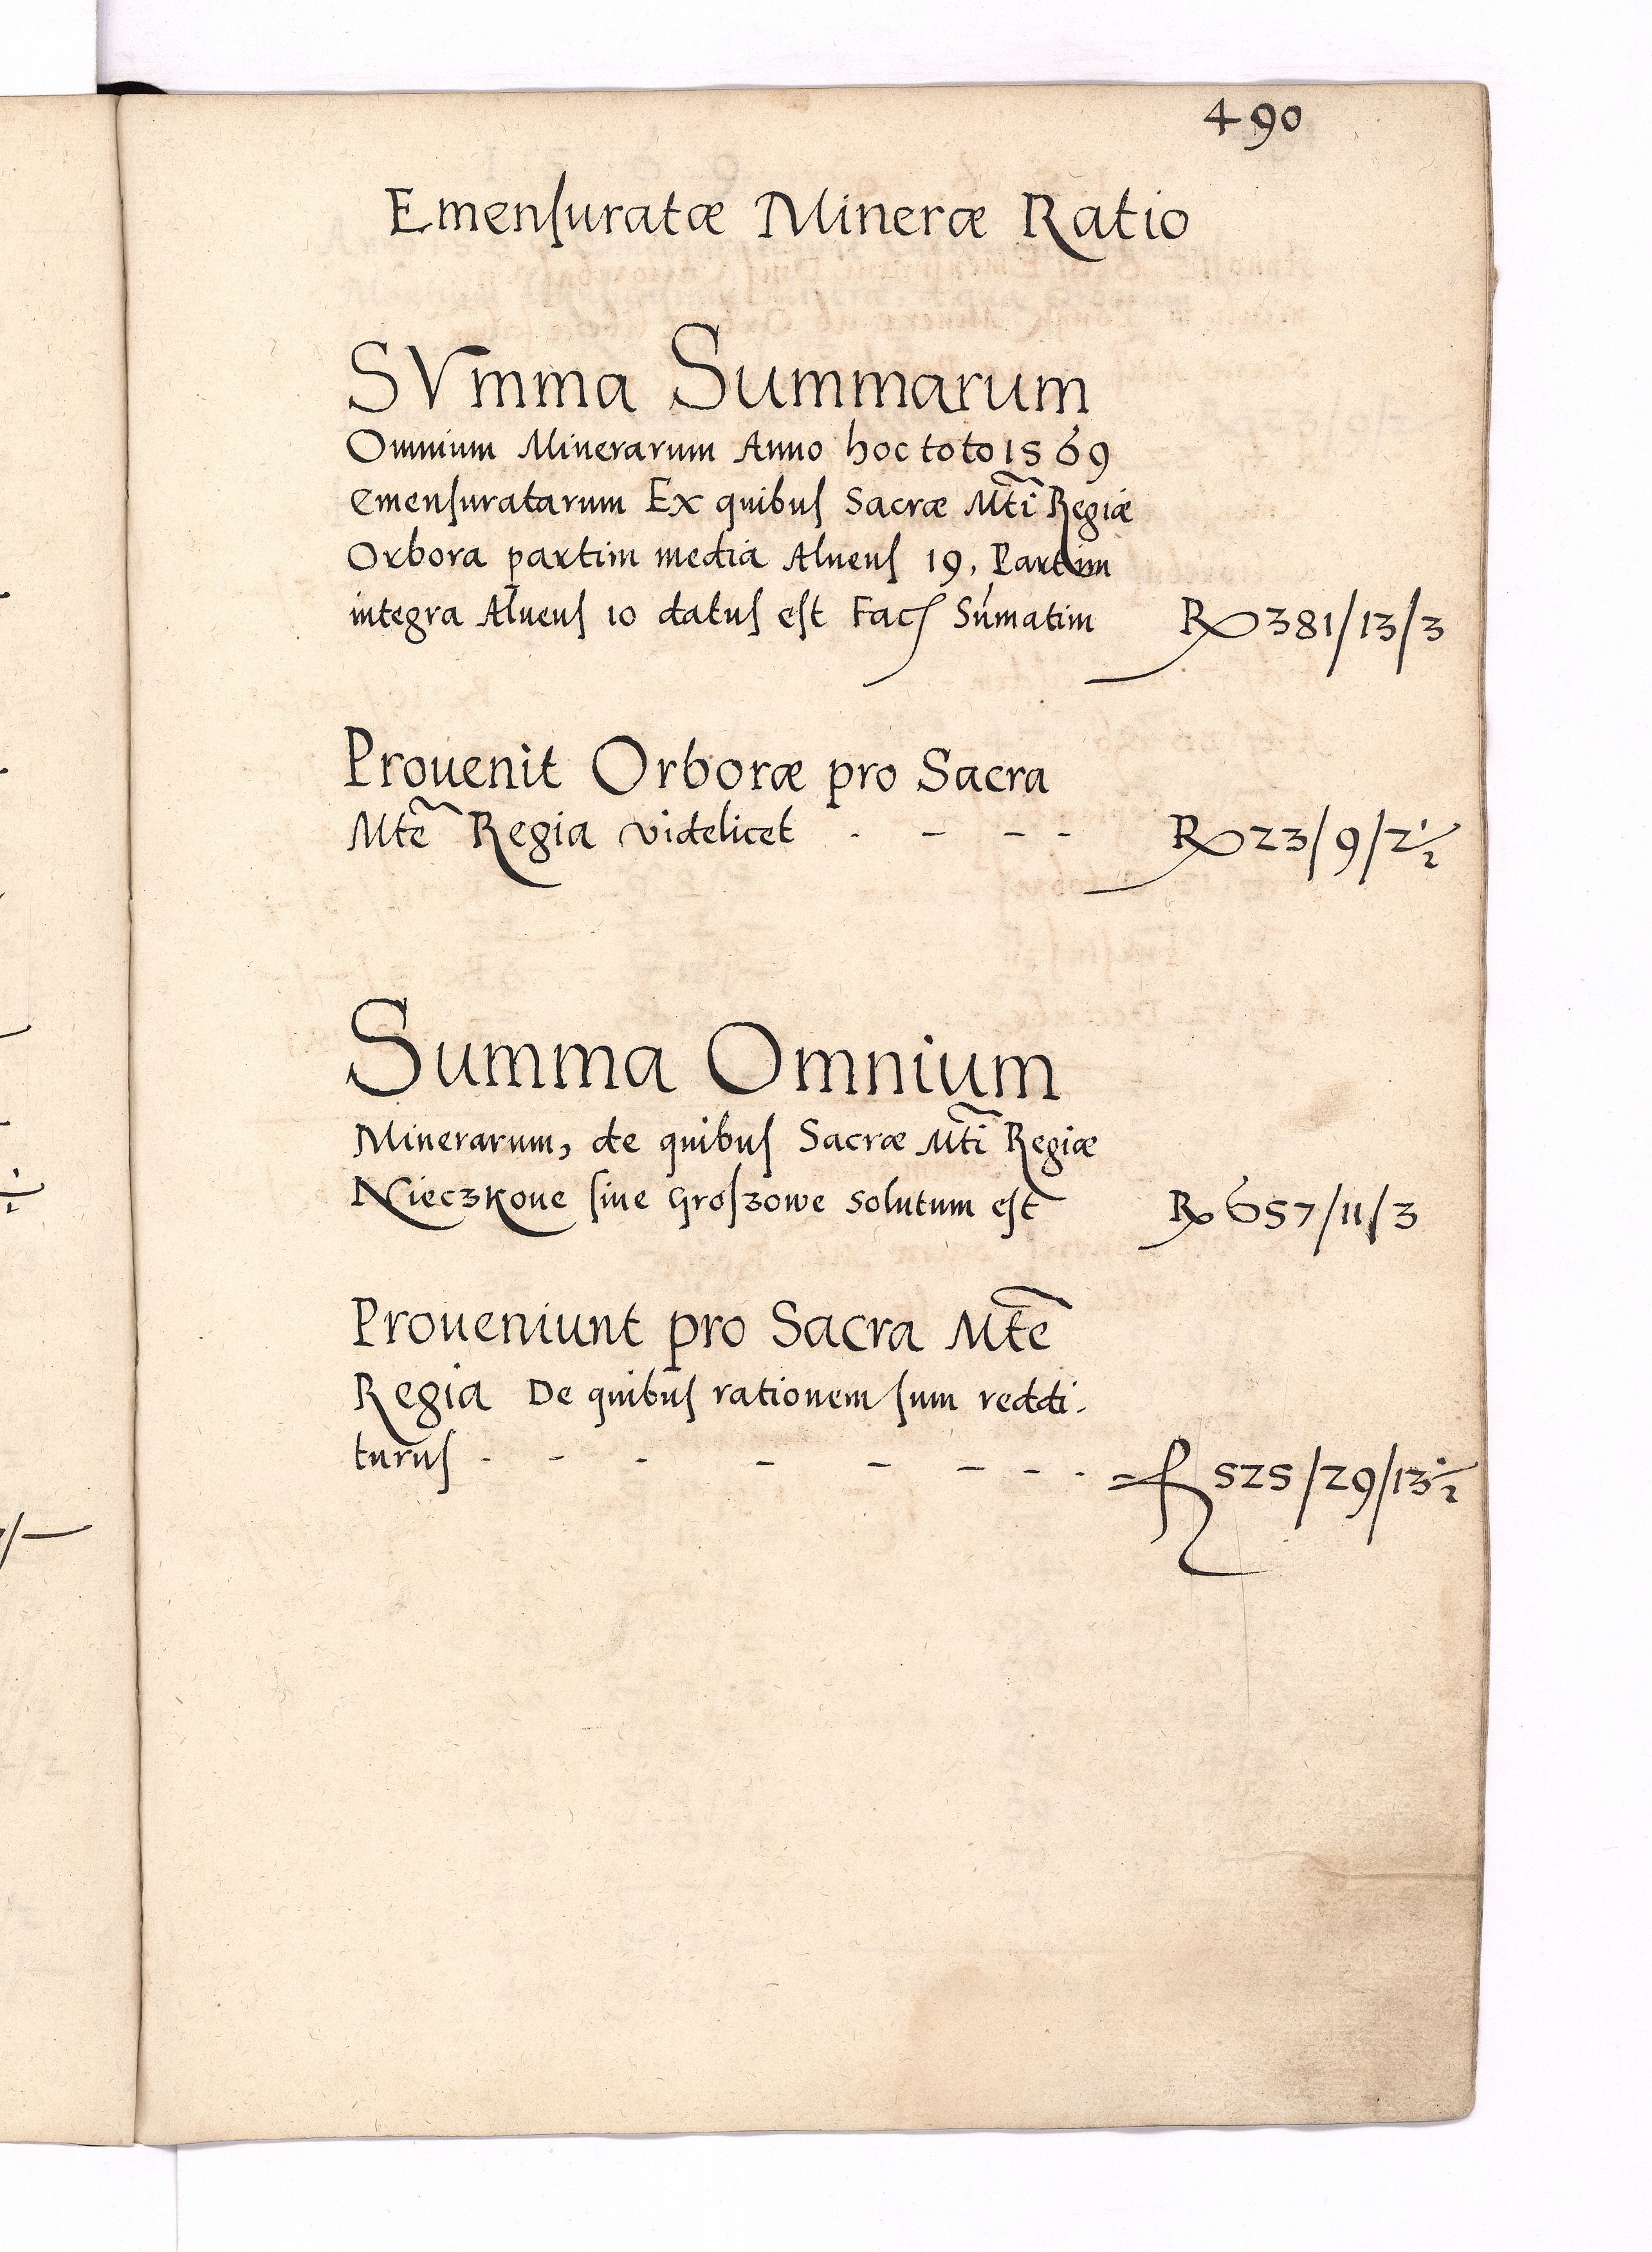 490
Emenſuratæ Mineræ Ratio
SVmma Summarum
Omnium Minerarum Anno hoc toto 1569
emenſuratarum Ex quibuſ Sacræ Mt̃i Regiæ
Orbora partim media Alueuſ 19, Partim
integra Alueuſ 10 datuſ eſt Facſ Sum̃atim 381/13/3
Prouenit Orboræ pro Sacra
Mtẽ Regia videlicet . - - - 23/9/2½
Summa Omnium
Minerarum, de quibuſ Sacræ Mt̃i Regiæ
Nieczkoue ſiue Groſzowe solutum eſt 657/11/3
Proueniunt pro Sacra Mtẽ
Regia De quibuſ rationem ſum reddi-
turuſ - - - - - - - . 525/29/13½